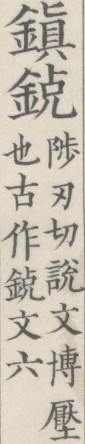 鎭
陟刃切說文博壓
也古作文六